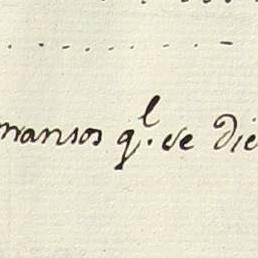 mansos ql. se die